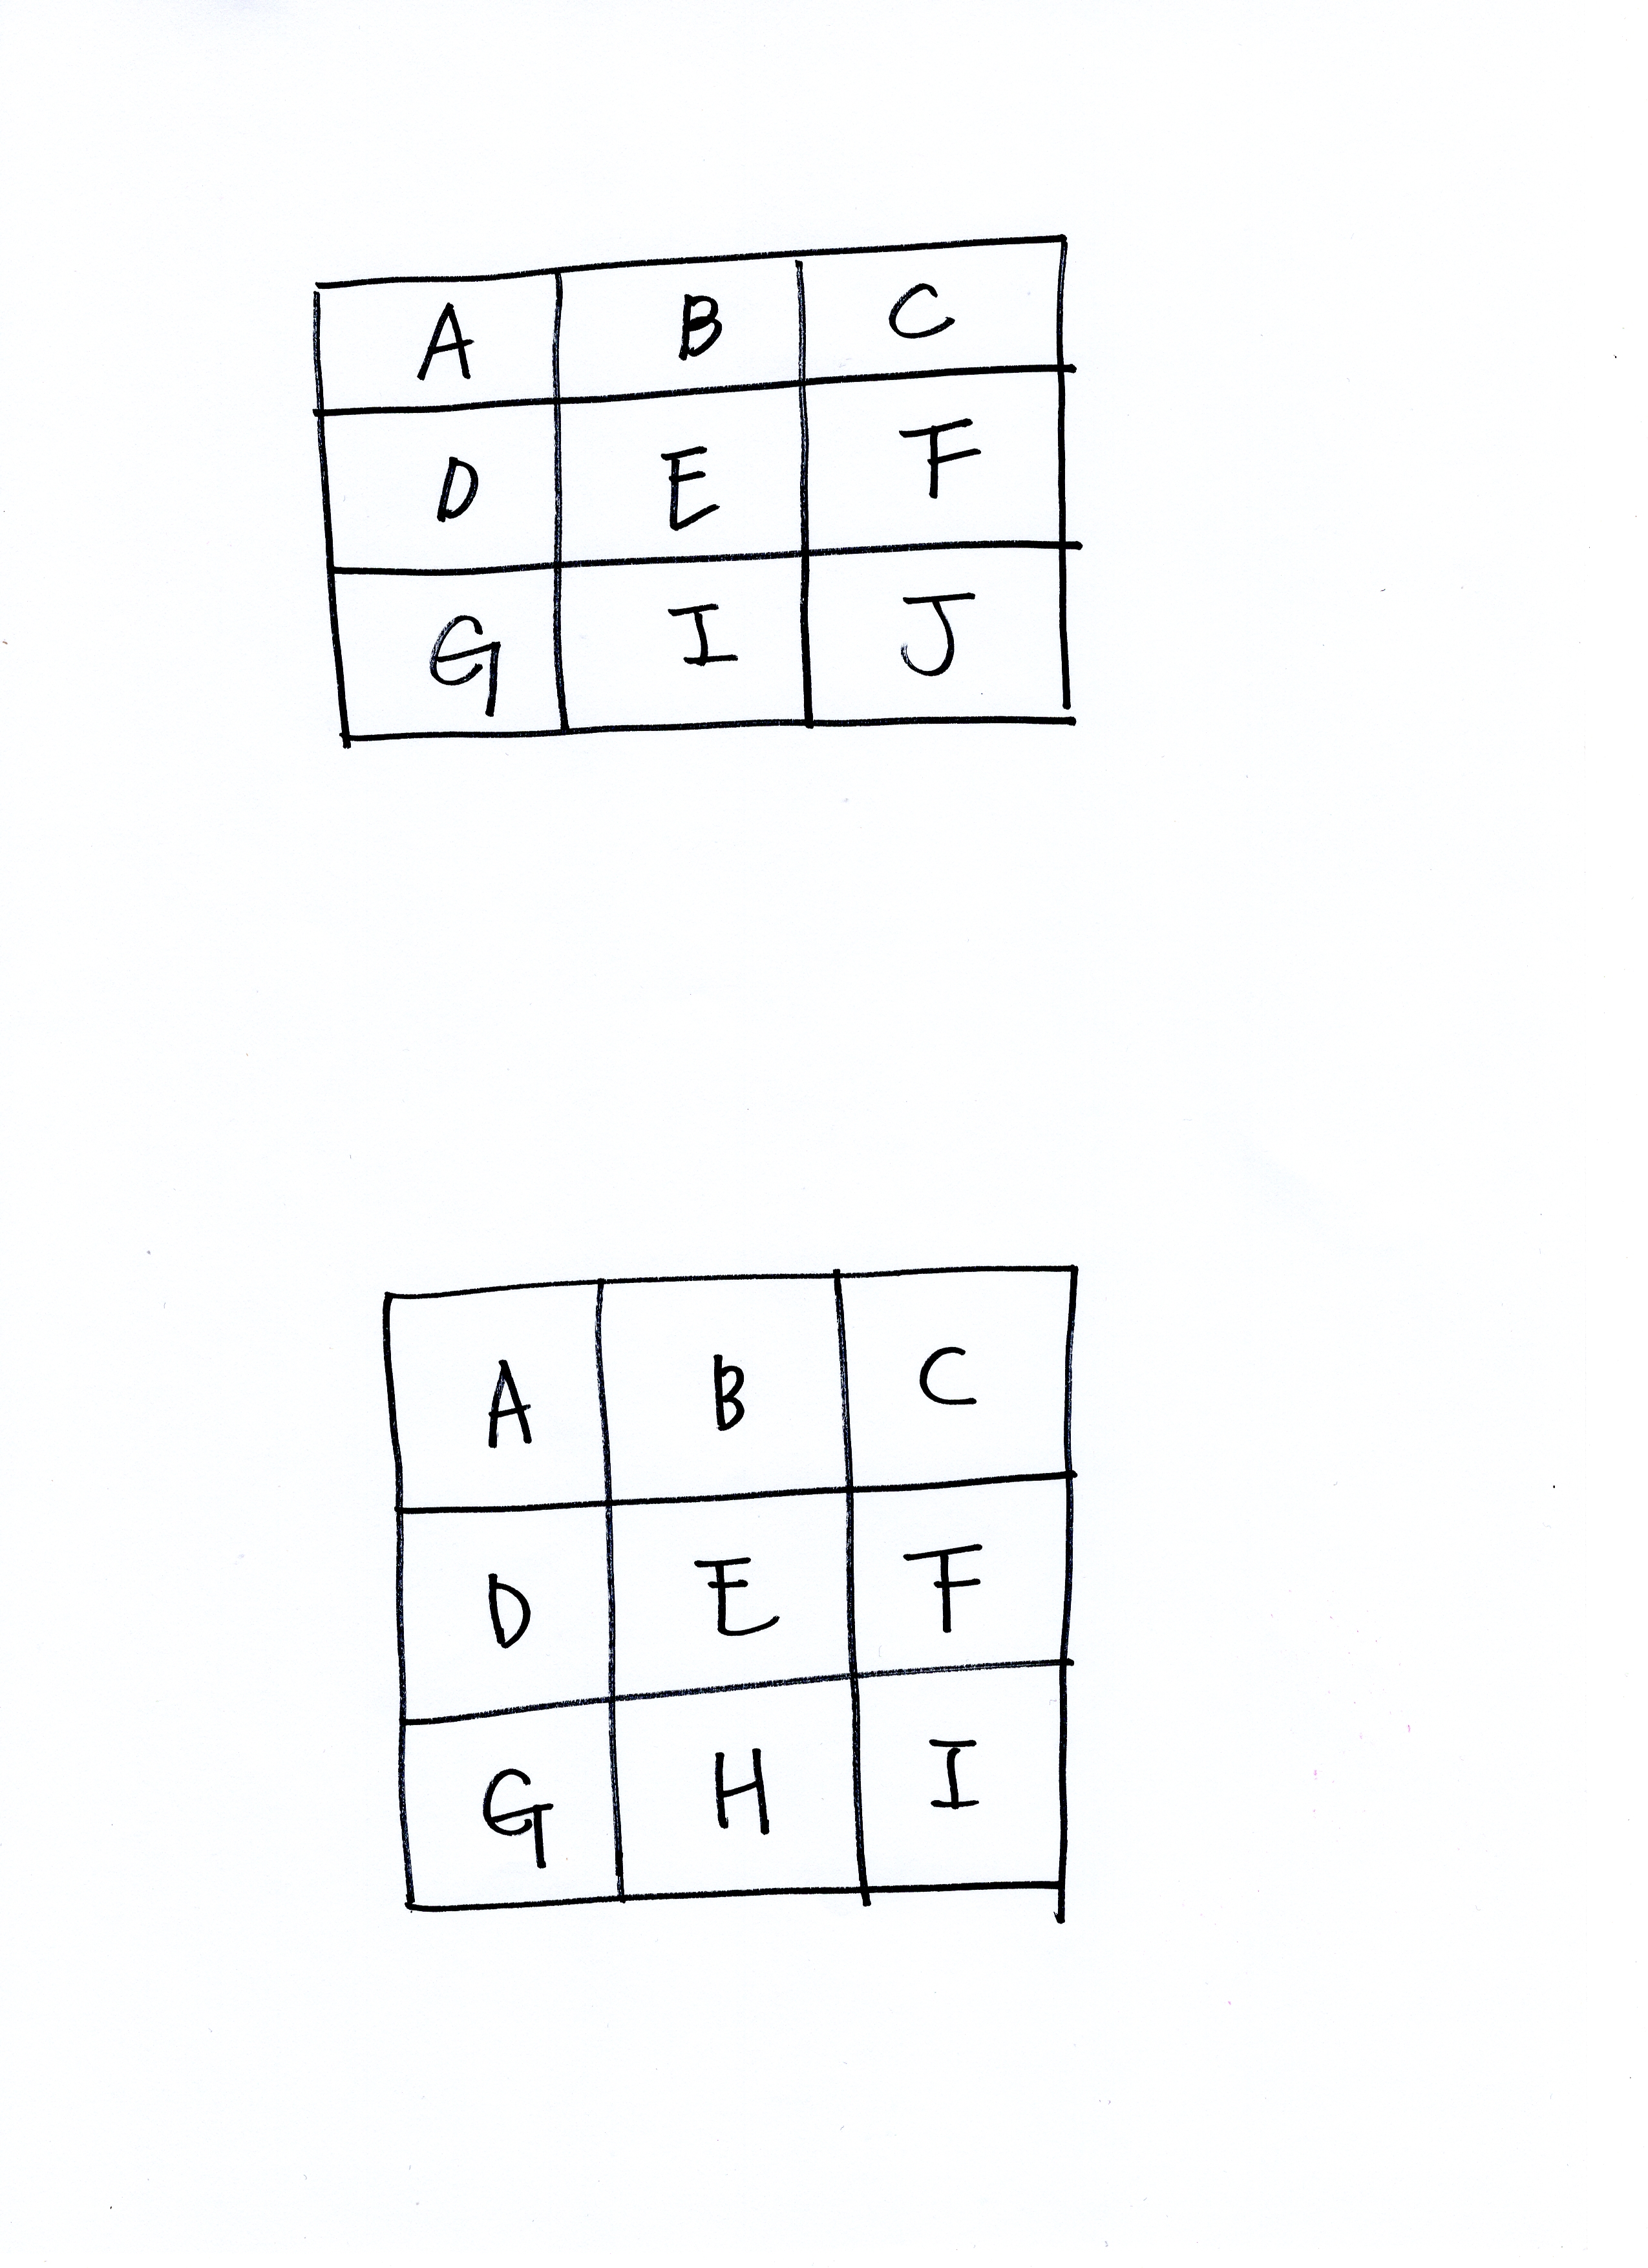 A B C
D E F
G I J
A B C
D E F
G H I